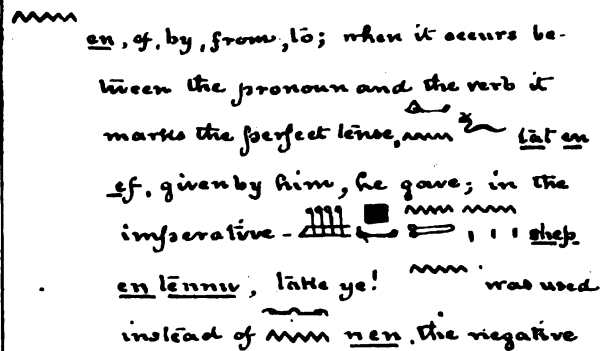 𓈖 en, of, by, from, to; when it occurs be-
tween the pronoun and the verb it
marks the perfect tense, 𓈖𓆑 tāt en
ef, given by him, he gave; in the
imperative - 𓆷𓊪𓈖𓍿𓈖𓏥 shep
en tennu, take ye! 𓈖 was used
instead of 𓂜𓈖 nen, the negative